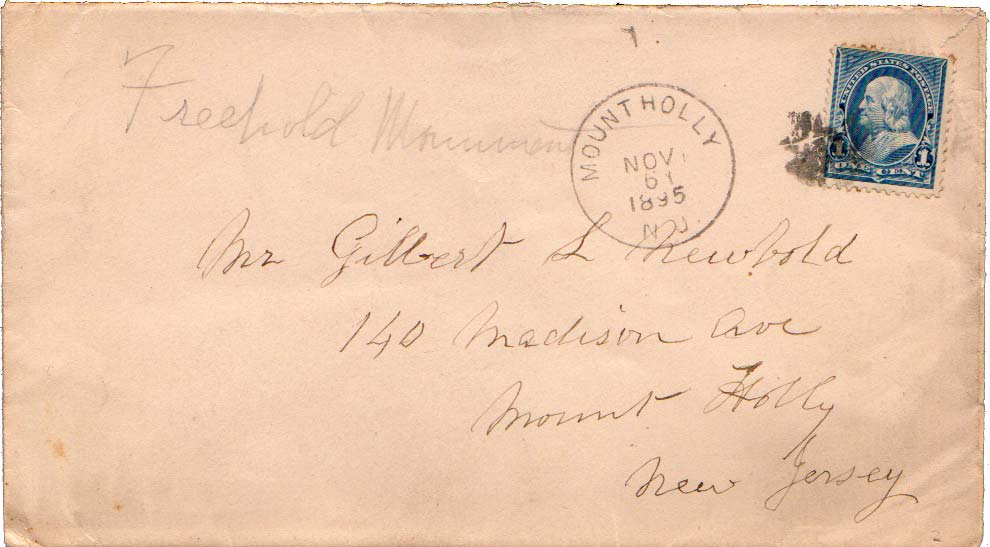 Freehold Monument
MOUNT HOLLY
NOV
6
1895
N.J.
UNITED STATES POSTAGE
1 1
ONE CENT
Mr Gilbert L Newbold
140 Madison Ave
Mount Holly
New Jersey